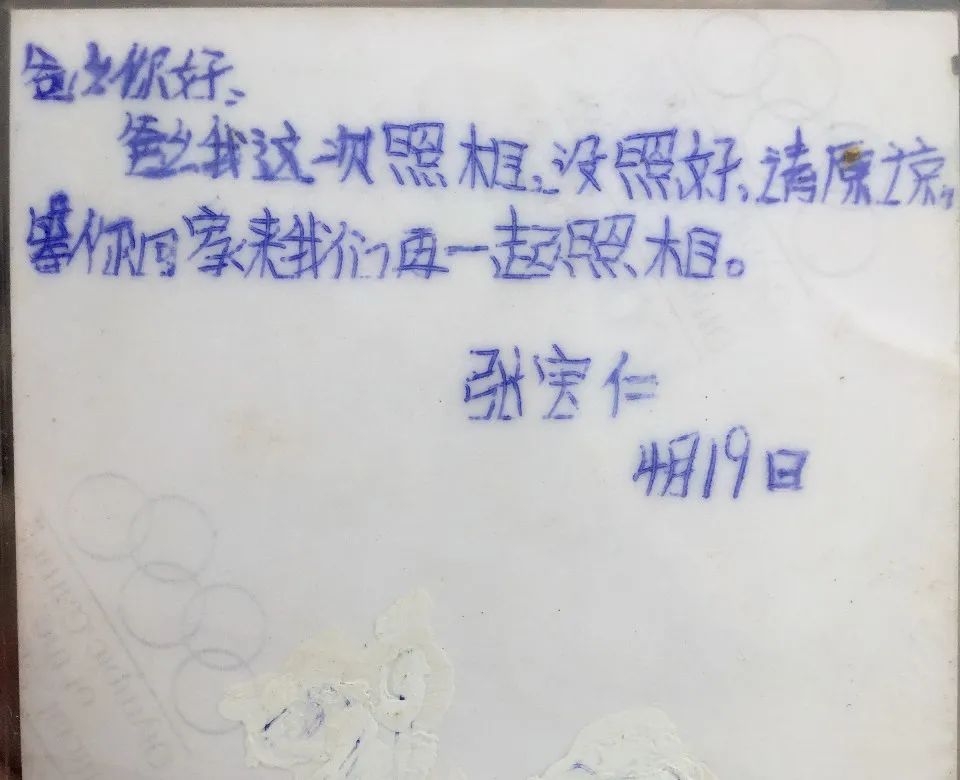 你好、
我这一次照相、没照好、请原谅。
等你回家来我们再一起照相。
张宝仁
4月19日